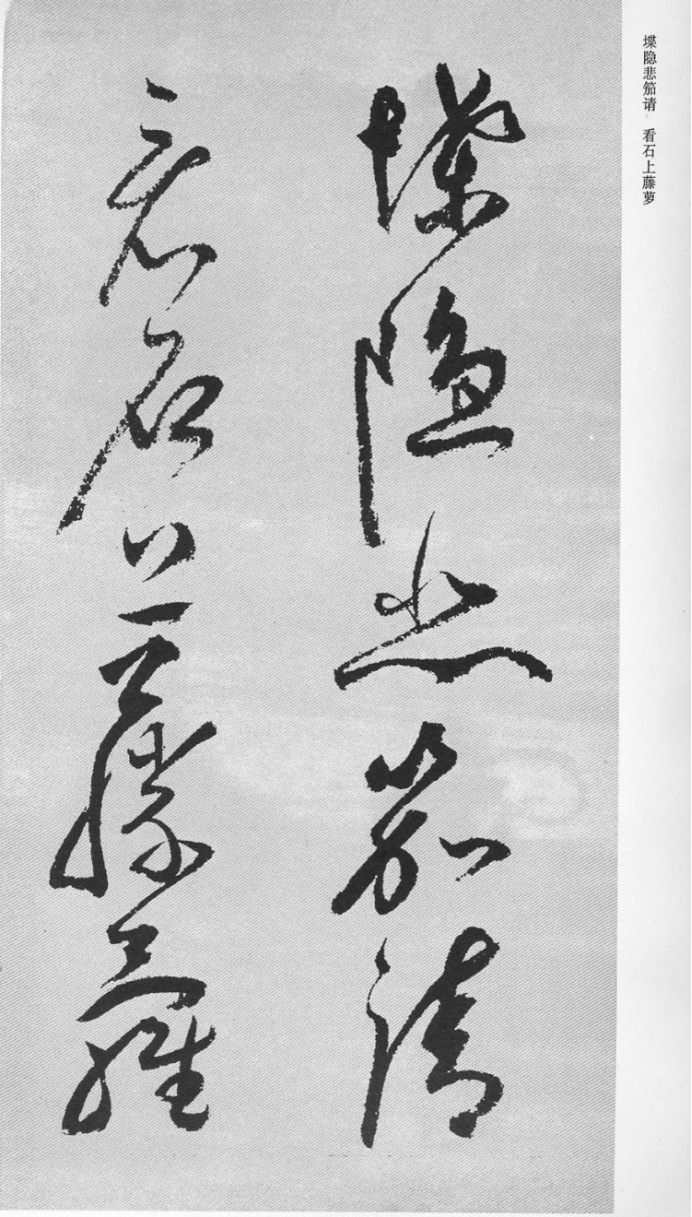 堞隐悲笳请 看石上藤萝
堞隱悲笳請
看石上藤蘿